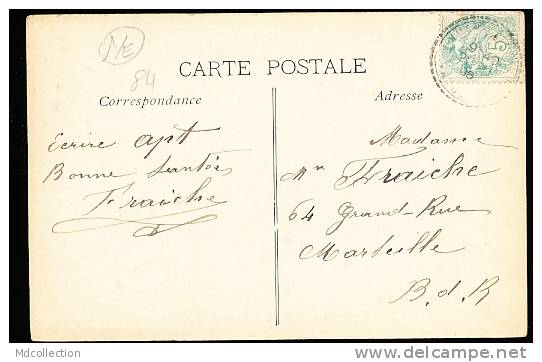 ME
84
CARTE POSTALE
Correspondance
Adresse
Ecrire apt
Bonne Santée
Fraiche
Madame
Mn Fraiche
64 Grand-Rue
Marseille
B.d.R
Mdcollection
www.delcampe.net